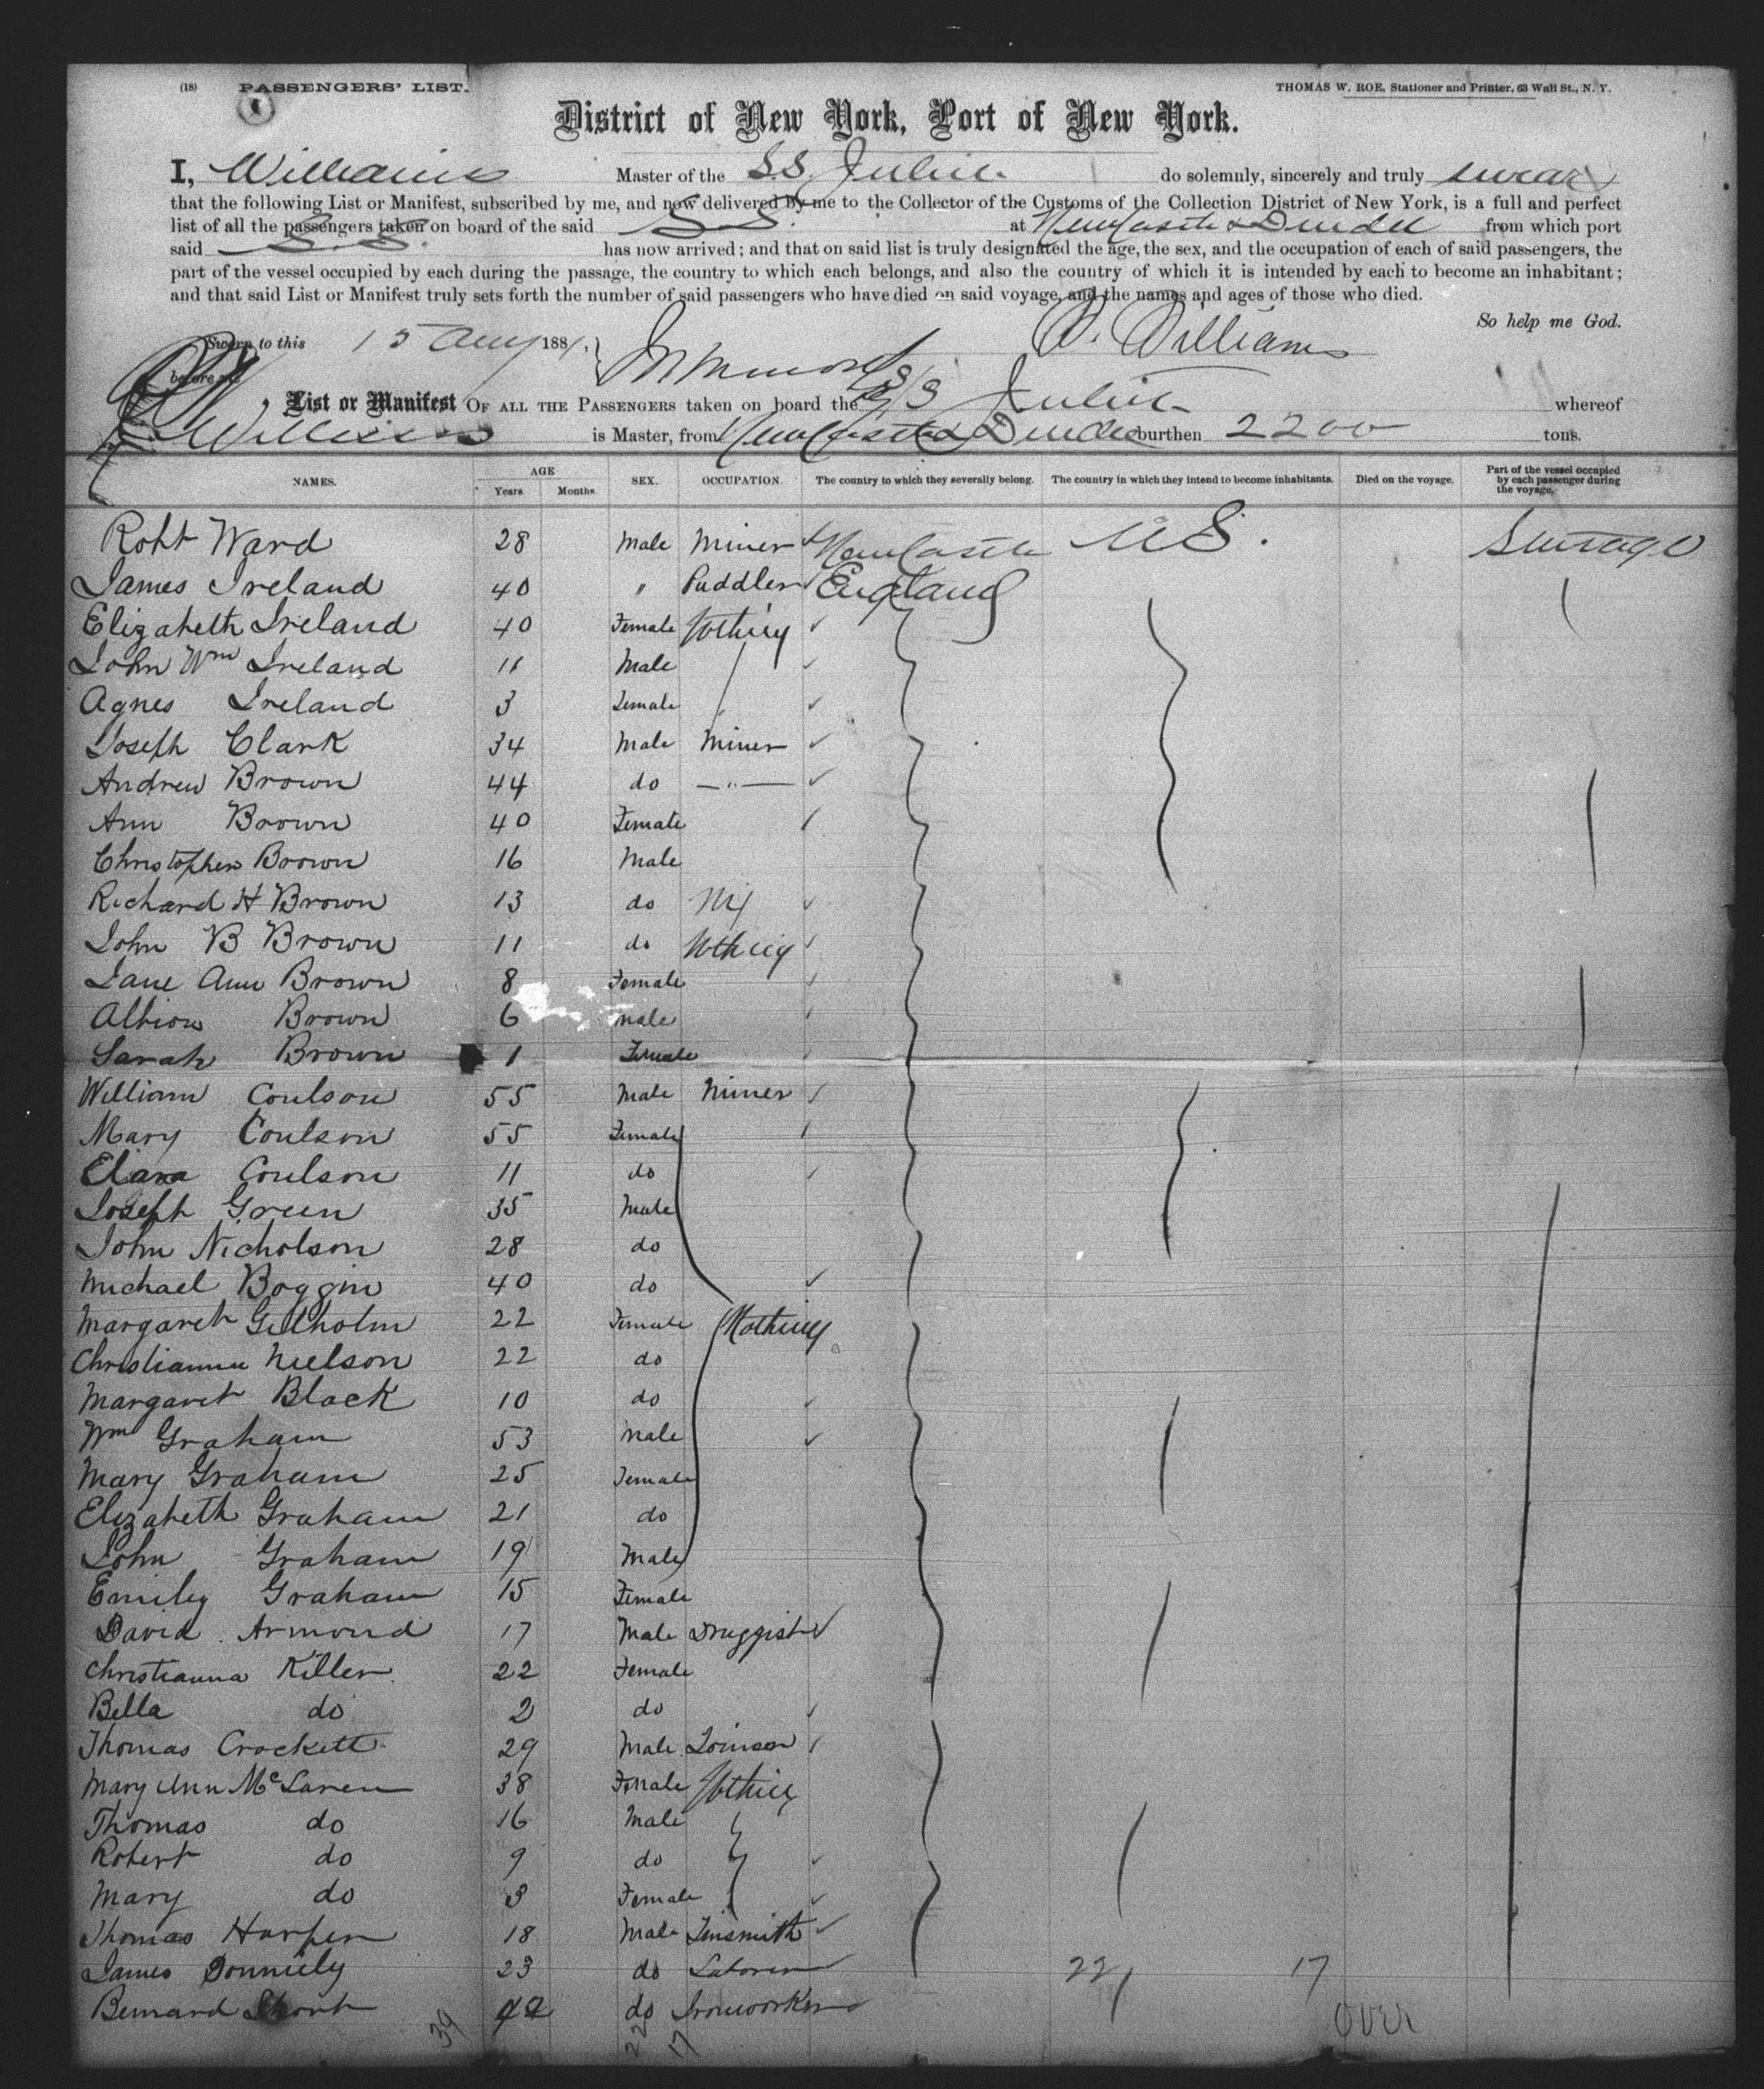 (18) PASSENGERS' LIST. THOMAS W. ROE, Stationer and Printer, 63 Wall St., N. Y.
1
District of New York, Port of New York.
I, Williams Master of the S.S. do solemnly, sincerely and truly swear
that the following List or Manifest, subscribed by me, and now delivered by me to the Collector of the Customs of the Collection District of New York, is a full and perfect
list of all the passengers taken on board of the said S.S. at Newcastle & Dundee from which port
said S.S. has now arrived; and that on said list is truly designated the age, the sex, and the occupation of each of said passengers, the
part of the vessel occupied by each during the passage, the country to which each belongs, and also the country of which it is intended by each to become an inhabitant;
and that said List or Manifest truly sets forth the number of said passengers who have died on said voyage, and the names and ages of those who died.
So help me God.
Sworn to this 15 Aug 1881, W. Williams
before me
List or Manifest OF ALL THE PASSENGERS taken on board the S/S whereof
Williams is Master, from Newcastle & Dundee burthen 2200 tons.
NAMES. AGE Years Months. SEX. OCCUPATION. The country to which they severally belong. The country in which they intend to become inhabitants. Died on the voyage. Part of the vessel occupied by each passenger during the voyage.
Robt Ward 28 Male Miner Newcastle U S. Steerage
James Ireland 40 " Puddler England
Elizabeth Ireland 40 Female Nothing
John Wm Ireland 11 Male
Agnes Ireland 3 Female
Joseph Clark 34 Male Miner
Andrew Brown 44 do — " —
Ann Brown 40 Female
Christopher Brown 16 Male
Richard H Brown 13 do
John B Brown 11 do Nothing
Jane Ann Brown 8 Female
Albion Brown 6 Male
Sarah Brown 1 Female
William Coulson 55 Male Miner
Mary Coulson 55 Female
Clara Coulson 11 do
Joseph Green 35 Male
John Nicholson 28 do
Michael Boggin 40 do
Margaret 22 Female Nothing
Christianna Nielson 22 do
Margaret Black 10 do
Wm Graham 53 Male
Mary Graham 25 Female
Elizabeth Graham 21 do
John Graham 19 Male
Emily Graham 15 Female
David Armond 17 Male Druggist
Christianna Killer 22 Female
Bella do 2 do
Thomas Crockett 29 Male
Mary Ann McLaren 38 Female Nothing
Thomas do 16 Male
Robert do 9 do
Mary do 3 Female
Thomas Harper 18 Male Tinsmith
James Donnely 23 do Laborer 22 17
Bernard Short 42 do Ironworker over
39 22 17